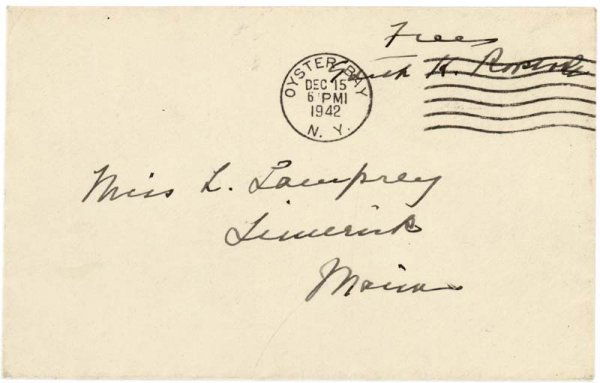 Free
Edith K. Roosevelt
OYSTER BAY
DEC 15
6 PM
1942
N. Y.
Miss L. Lamprey
Limerick
Maine